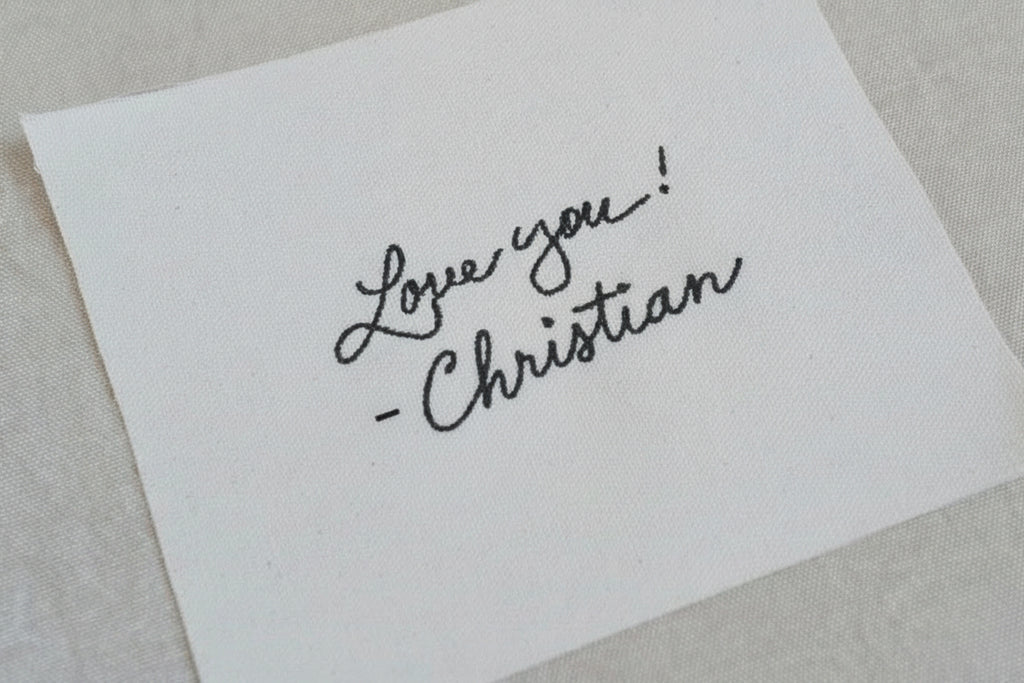 Love you!
- Christian